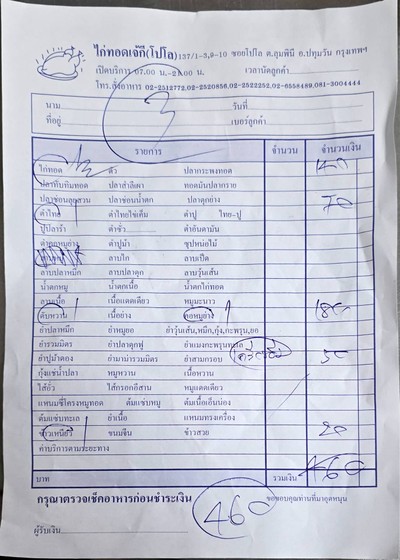 ไก่ทอดเจ๊กี(โปโล) 137/1-3,9-10 ซอยโปโล ต.ลุมพินี อ.ปทุมวัน กรุงเทพฯ
เปิดบริการ 07.00 น.-21.00 น. เวลานัดลูกค้า
โทร.สั่งอาหาร 02-2512772,02-2520856,02-2522252,02-6558489,081-3004444
นาม 3 วันที่
ที่อยู่ เบอร์ลูกค้า
รายการ จำนวน จำนวนเงิน
ไก่ทอด ตัว ปลากระพงทอด 140
ปลาทับทิมทอด ปลาสำลีเผา ทอดมันปลากราย
ปลาช่อนลุยสวน ปลาช่อนน้ำตก ปลาดุกย่าง 70
ตำไทย 1 ตำไทยไข่เค็ม ตำปู ไทย-ปู
ปูปลาร้า ตำซั่ว ตำอันดามัน
ตำคอหมูย่าง ตำปูม้า ซุปหน่อไม้
ลาบไก่ ลาบเป็ด
ลาบปลาหมึก ลาบปลาดุก ลาบวุ้นเส้น
น้ำตกหมู น้ำตกเนื้อ น้ำตกไก่ทอด
ลาบเนื้อ เนื้อแดดเดียว หมูมะนาว
ตับหวาน 1 เนื้อย่าง คอหมูย่าง 1 180
ยำปลาหมึก ยำหมูยอ ยำวุ้นเส้น,หมึก,กุ้ง,กะพรุน,ยอ
ยำรวมมิตร ยำปลาดุกฟู ยำแมงกะพรุนทะเล
ยำปูม้าดอง ยำมาม่ารวมมิตร ยำสามกรอบ
กุ้งแช่น้ำปลา หมูหวาน เนื้อหวาน
ไส้อั่ว ไส้กรอกอีสาน หมูแดดเดียว
แหนมซี่โครงหมูทอด ต้มแซ่บหมู ต้มเนื้อเอ็นน่อง
ต้มแซ่บทะเล ยำเนื้อ แหนมทรงเครื่อง
ข้าวเหนียว 1 ขนมจีน ข้าวสวย 20
ค่าบริการตามระยะทาง
บาท รวมเงิน 460
กรุณาตรวจเช็คอาหารก่อนชำระเงิน ขอขอบคุณท่านที่มาอุดหนุน
460
ผู้รับเงิน